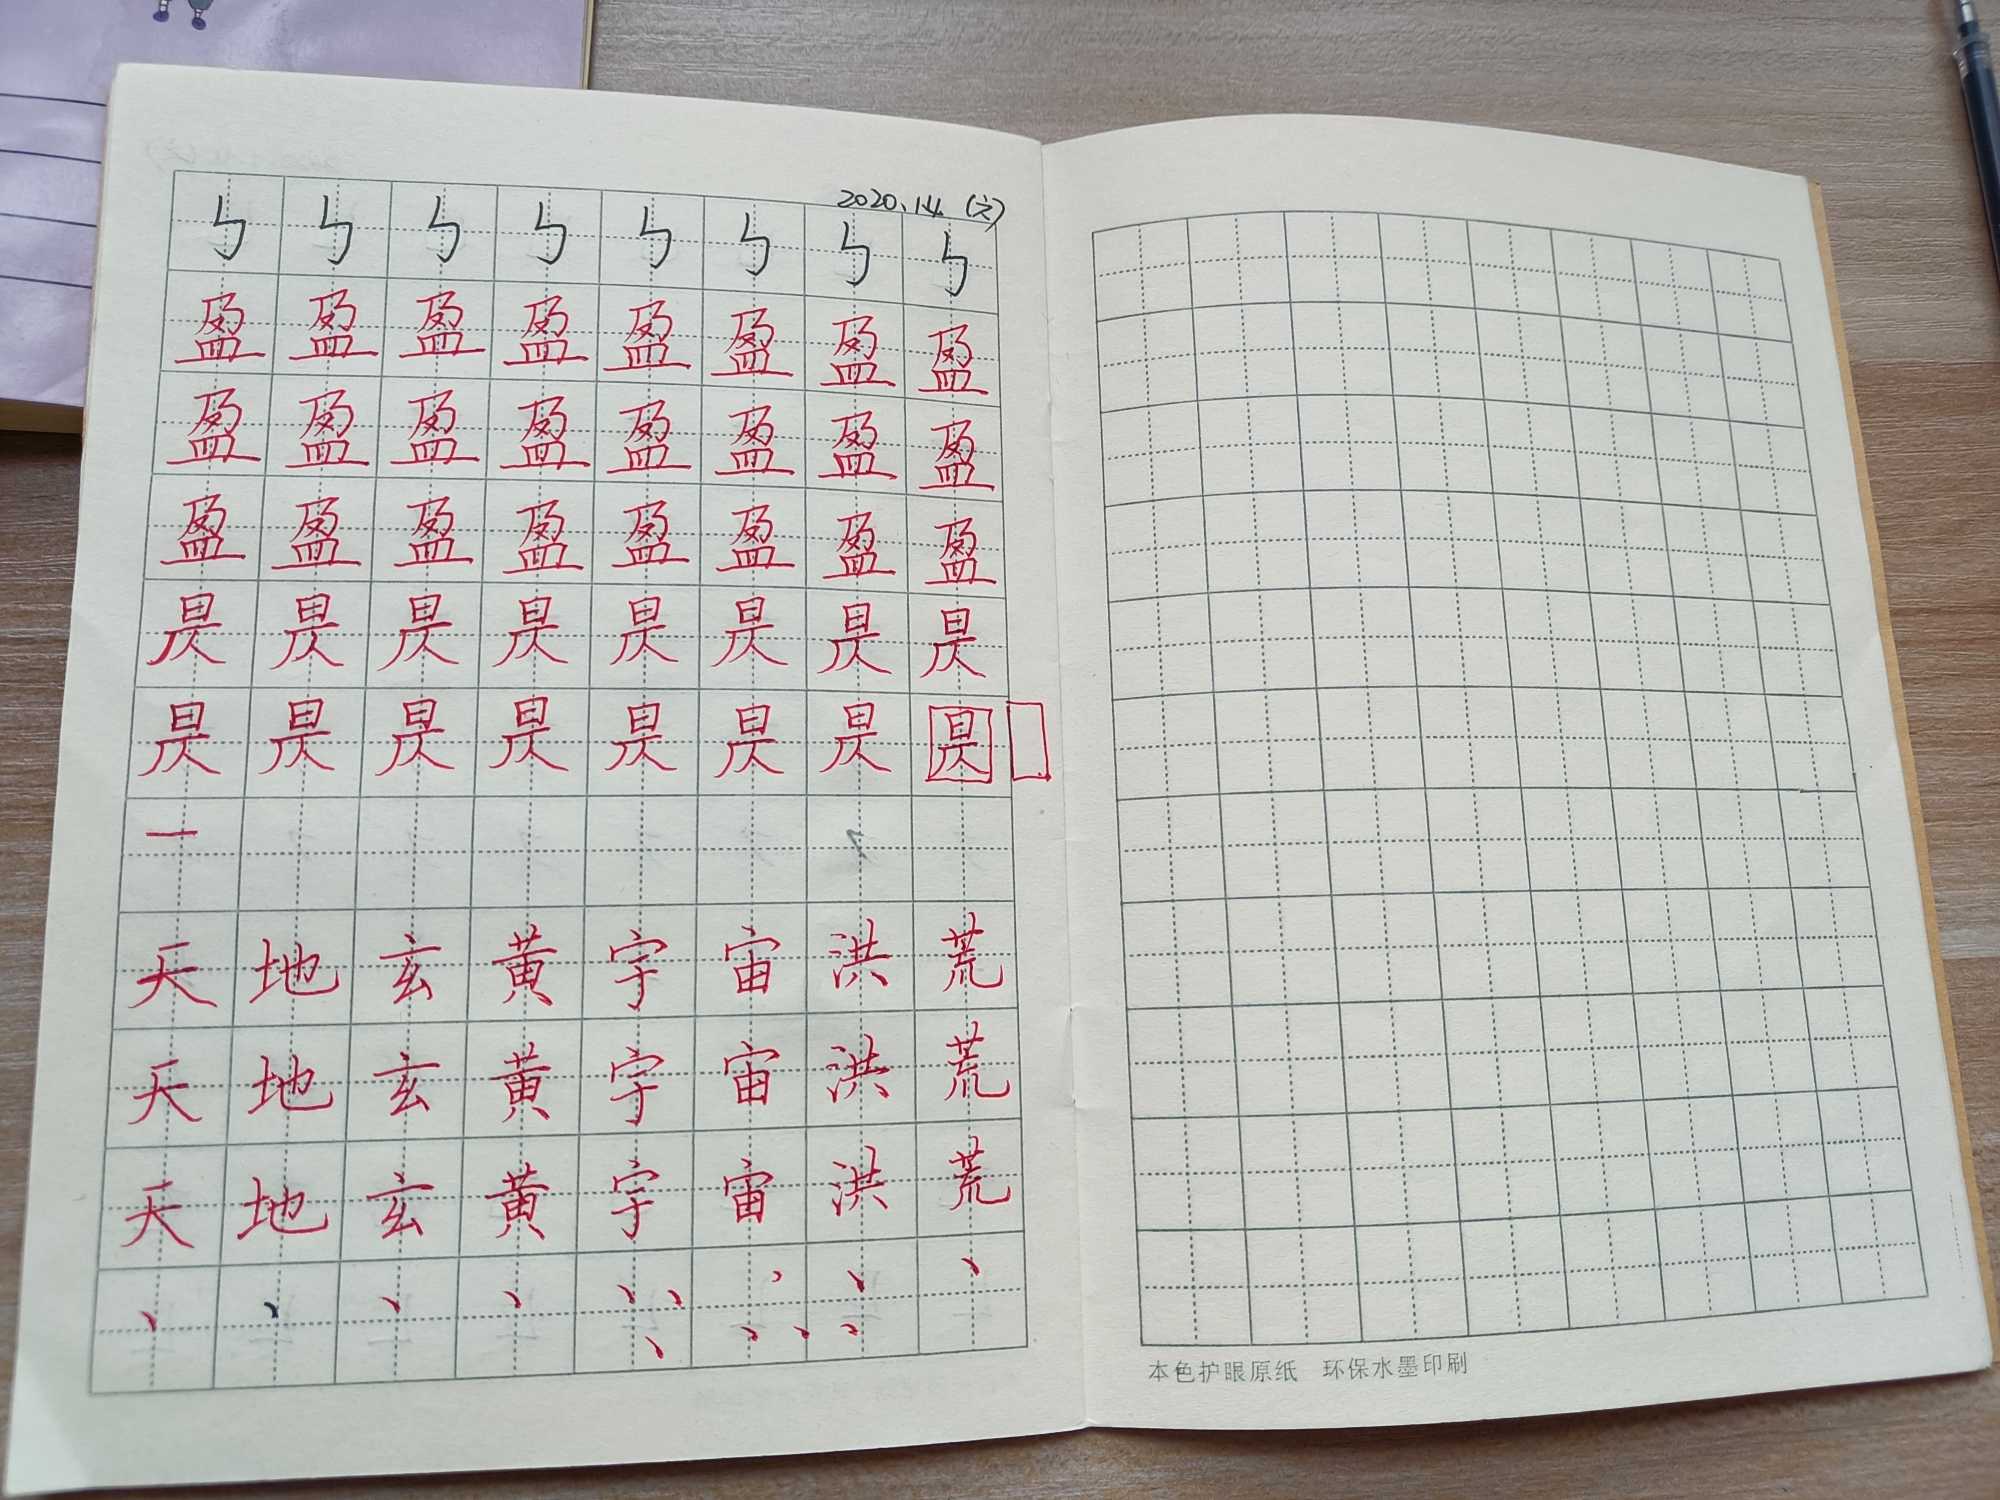 2020.1.4.(六)
㇉㇉㇉㇉㇉㇉㇉㇉
盈盈盈盈盈盈盈盈
盈盈盈盈盈盈盈盈
盈盈盈盈盈盈盈盈
昃昃昃昃昃昃昃昃
昃昃昃昃昃昃昃昃
一
天地玄黄宇宙洪荒
天地玄黄宇宙洪荒
天地玄黄宇宙洪荒
本色护眼原纸 环保水墨印刷